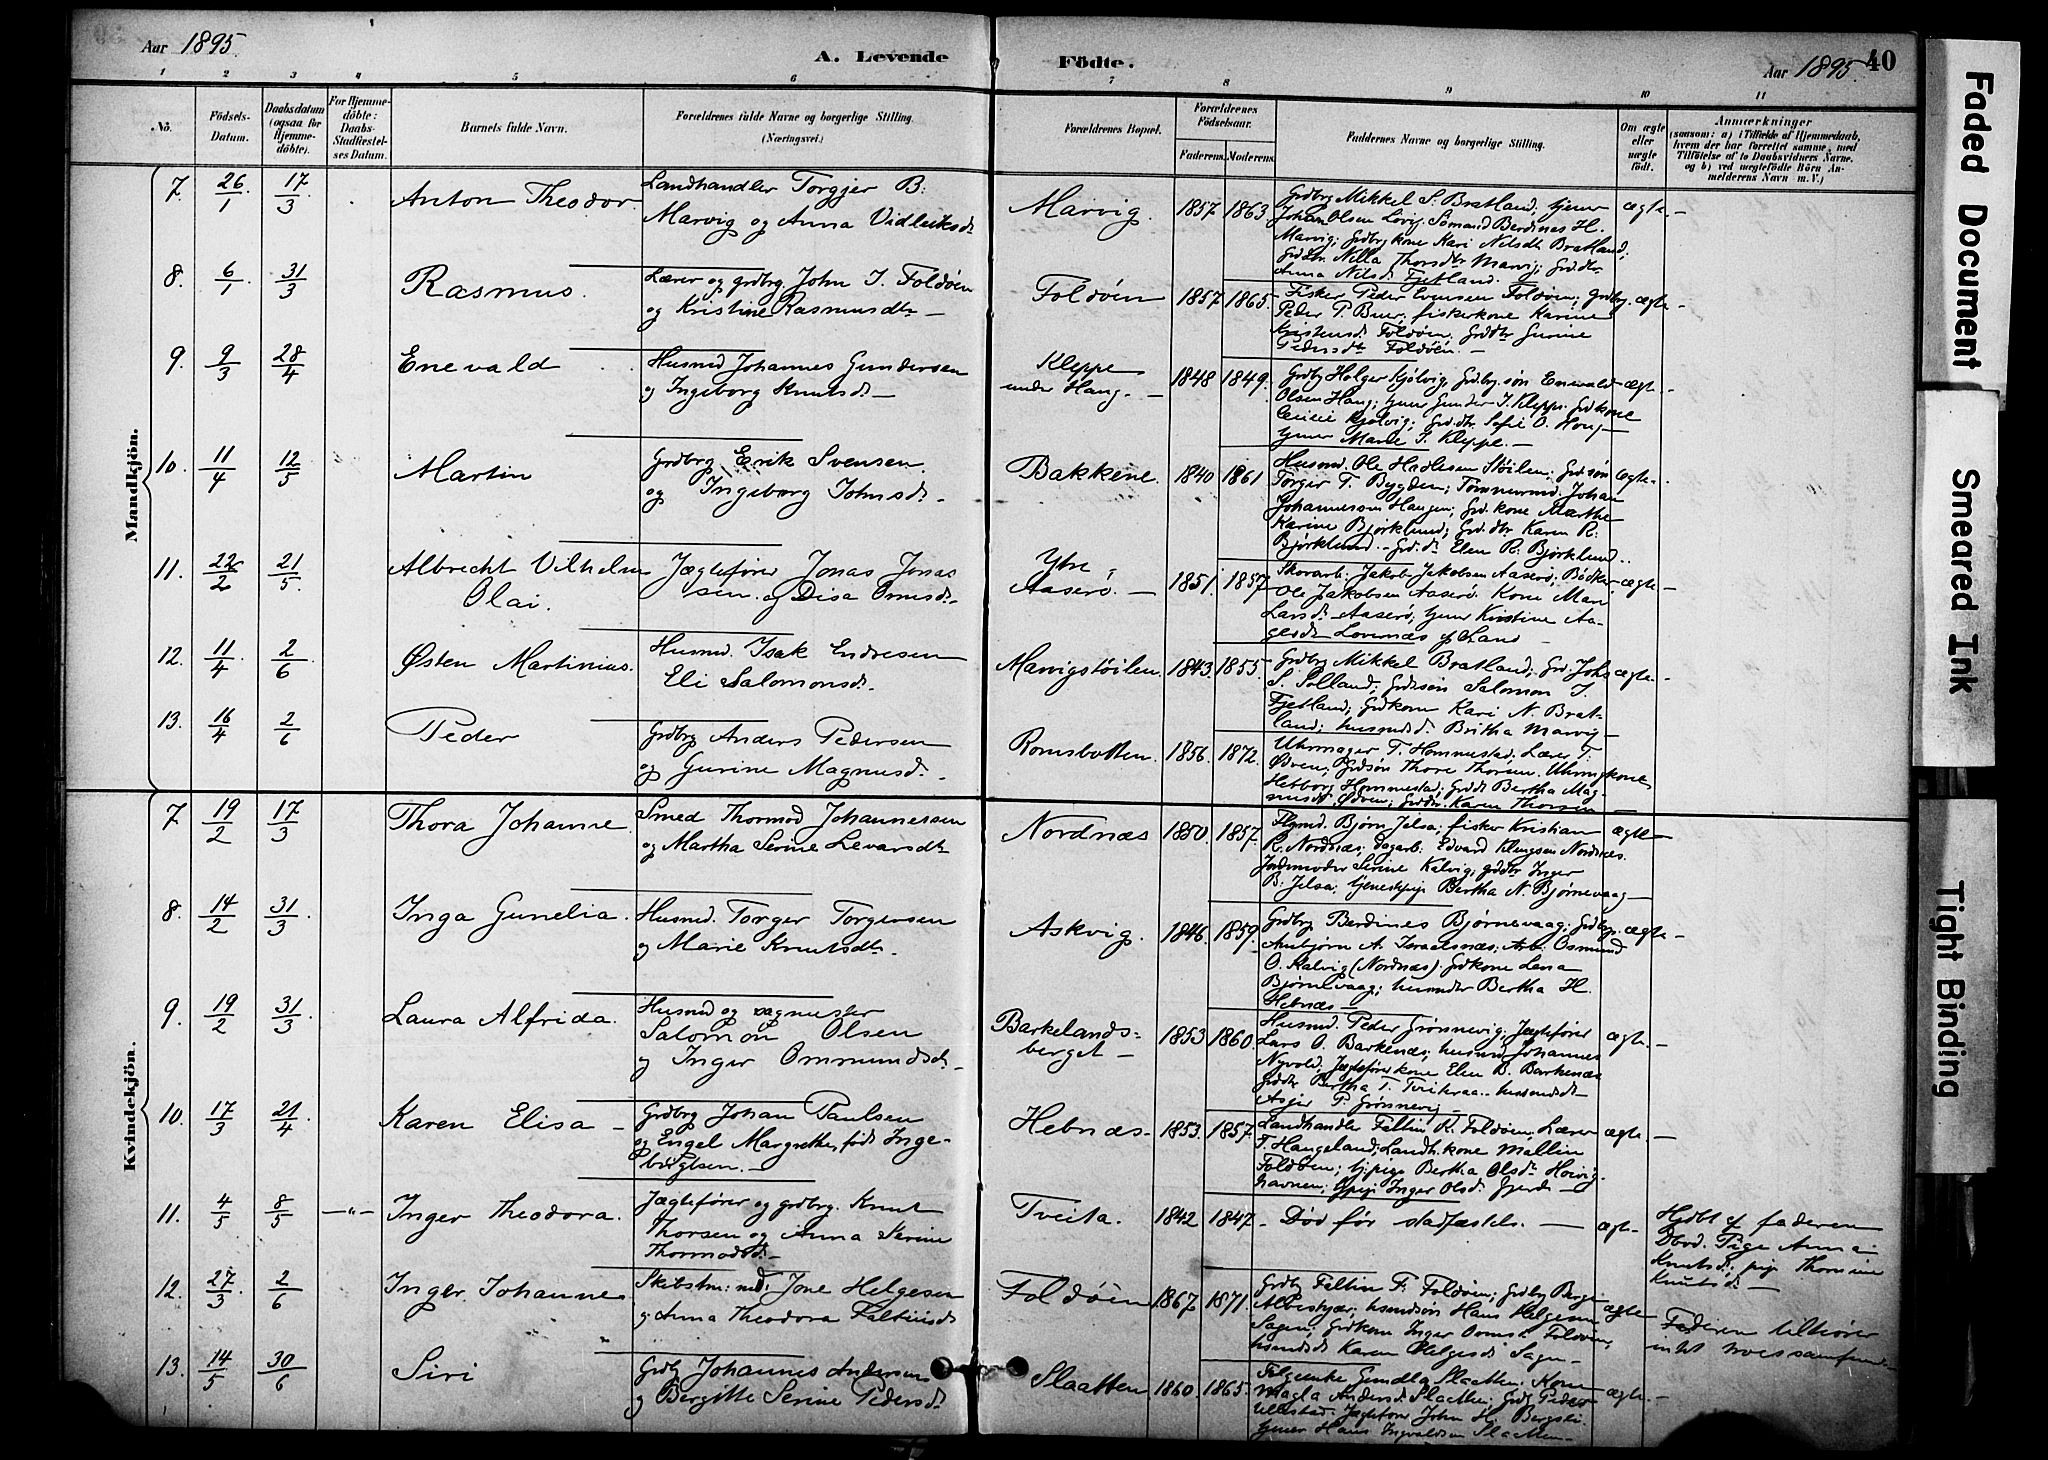 Aar 1895.
A. Levende
Födte.
Aar 1895.
40
1 2 3 4 5 6 7 8 9 10 11
No.
Födsels-
Datum.
Daabsdatum
(ogsaa for
Hjemme-
döbte).
For Hjemme-
döbte:
Daabs-
Stadfæstel-
ses Datum.
Barnets fulde Navn.
Forældrenes fulde Navne og borgerlige Stilling.
(Næringsvei.)
Forældrenes Bopæl.
Forældrenes
Födselsaar.
Faderens.
Moderens.
Faddernes Navne og borgerlige Stilling.
Om ægte
eller
uægte
födt.
Anmærkninger
(saasom: a) i Tilfælde af Hjemmedaab,
hvem der har forrettet samme, med
Tilföielse af to Daabsvidners Navne,
og b) ved uægtefödte Börn An-
melderens Navn m. V.)
Mandkjön.
7. 26/1 17/3
Anton Theodor
Landhandler Torgjer B.
Marvig og Anna Vidleiksdr
Marvig. 1857 1863
Grdbrg Mikkel S. Bratland; tjener
Johan Olsen Lovig; Sømand Berdines H.
Marvig; Grdbrg kone Kari Nilsdtr Bratland;
Grdtr. Nilla Thorsdtr Marvig; Grd.dtr.
Anna Nilsd. Fjetland.
ægte
8. 6/1 31/3
Rasmus.
Lærer og grdbrg John I. Foldøen
og Kristine Rasmusdtr
Foldöen 1857 1865.
Fisker Peder Evensen Foldøen; Grdbrg.
Peder P. Buer, fiskerkone Karine
Kristensd. Foldøen; Grddtr Gurine
Pedersdtr Foldöen.
ægte
9. 9/3 28/4
Enevald
Husmd Johannes Gundersen
og Ingeborg Knutsd.
Kleppe
under Haug. 1848 1849.
Grdbrg Holger Kjølvig, Grdbrg. søn Enevald
Olsen Haug; tjener Gunder J. Kleppe. Grdkone
Kjølvig; Grd.dtr. Sofie O. Haug
tjener Marie J. Kleppe.
ægte.
10. 11/4 12/5
Martin
Grdbrg Erik Svensen.
og Ingeborg Johnsd.
Bakkene. 1840 1861
Husmd. Ole Hadlesen Støilen; Grd.søn
Torger T. Bygden; Tømmermd. Johan
Johannessen Haugen; Grd.kone Marthe
Karine Bjørklund; Grd.dtr Karen R.
Bjørklund. Grd.d. Elen R. Bjørklund.
ægte
11. 22/2 21/5
Albrecht Vilhelm
Olai.
Jægtefører Jonas Jonas
sen. og Disa Ormsd.
Ytre
Aaserö. 1851. 1857
Skovarb. Jakob Jakobsen Aaserø; Bødker
Ole Jakobsen Aaserø. Kone Mari
Larsd. Aaserø; tjener Kristine Aa-
gesdtr Lovernæs af Sand
ægte
12. 11/4 2/6
Østen Martinius.
Husmd. Isak Endresen
Eli Salomonsd.
Marvigstøilen. 1843. 1855.
Grdbrg Mikkel Bratland; Grd. Johs
S. Solland; Grd.søn Salomon I.
Fjetland; Grdkone Kari N. Brat-
land; husmdsd. Britha Marvig
ægte
13. 16/4 2/6
Peder
Grdbrg Anders Pedersen
og Gurine Magnusd.
Romsbotten. 1856. 1872.
Uhrmager T. Hommestad; Lærer T.
Ødven; Grdsøn Thore Thorsen. Uhrmgkone
Hetborg Hommestad; Grddt Bertha Mag-
nusdt Ødven; Grddtr. Karen Thorsen
Kvindekjön.
7 19/2 17/3
Thora Johanne.
Smed Thormod Johannessen
og Martha Serine Levarsdtr
Nordnæs 1850. 1857.
Bjørn Jelsa; fisker Kristian
R. Nordnæs; Dagarb. Edvard Klingsen Nordnæs.
Jordemoder Serine Kalvig; grddtr Inger
B. Jelsa; tjenestepige Bertha N. Bjørnevaag
ægte
8. 14/2 31/3
Inga Gunelia.
Husmd. Torger Torgersen
og Marie Knutsdtr
Askvig. 1846. 1859.
Grdbrg Berdines Bjørnevaag; Grdbrg.
Anbjørn A. Israelsnæs; Arb. Osmund
O. Kalvig (Nordnæs). Grdkone Lena
Bjørnevaag; husmdtr Bertha H.
Hebnæs
ægte
9. 19/2 31/3
Laura Alfrida.
Husmd og sagmester
Salomon Olsen
og Inger Ommundsdr.
Barkelands-
berget 1853 1860.
Husmd. Peder Grønnevig; Jægtefører
Lars O. Barkenæs; husmd Johannes
Nyvold, Jægtefører kone Elen B. Barkenæs
Grddtr Bertha T. Tveiteraa. husmdsdt
Asgjer P. Grønnevig
ægte.
10. 17/3 21/4
Karen Elisa
Grdbrg Johan Paulsen
og Engel Margrethe, født Inge-
brigtsen.
Hebnæs 1853. 1857.
Landhandler Feltin K. Foldøen; Lærer
T. Haugeland; Landh. kone Mallin
Foldøen; tj.pige Bertha Olsdr Hoivig
havnen; tj.pige Inger Olsd. Gjerde
ægte.
11. 4/5 8/5 —"—
Inger Theodora.
Jægtefører og grdbrg. Knut
Thorsen og Anna Serine
Thormodsd.
Tveita. 1842 1847.
Död før stadfæstels.
ægte
Hjdbt af faderen
Dbvd. Pige Anna
Knutsd; pige Thomine
Knutsd.
12. 27/3 2/6
Inger Johanne
Skibstm: md. Jone Helgesen
og Anna Theodora Faltinsdt
Foldøen 1867 1871.
Grdbrg Faltin F. Foldøen; Grdbrg Berge
husmdsøn Hans Helgesen
Sagen; Grdkone Inger Foldøen,
husmdsd Karen Helgesd Sagen
ægte
Faderen tilhører
intet troessamfund
13. 14/5 30/6
Siri
Grdb. Johannes Andersen
og Bergitte Serine Pedersd.
Slaatten 1860. 1865.
Gundla Slaatten. Kone
Magla Andersd Slaatten; Grdb Peder
Ullestad. Jægtefører John H. Bergsti.
tjener Hans Ingvaldsen Slaatten
ægte
Faded Document
Smeared Ink
Tight Binding